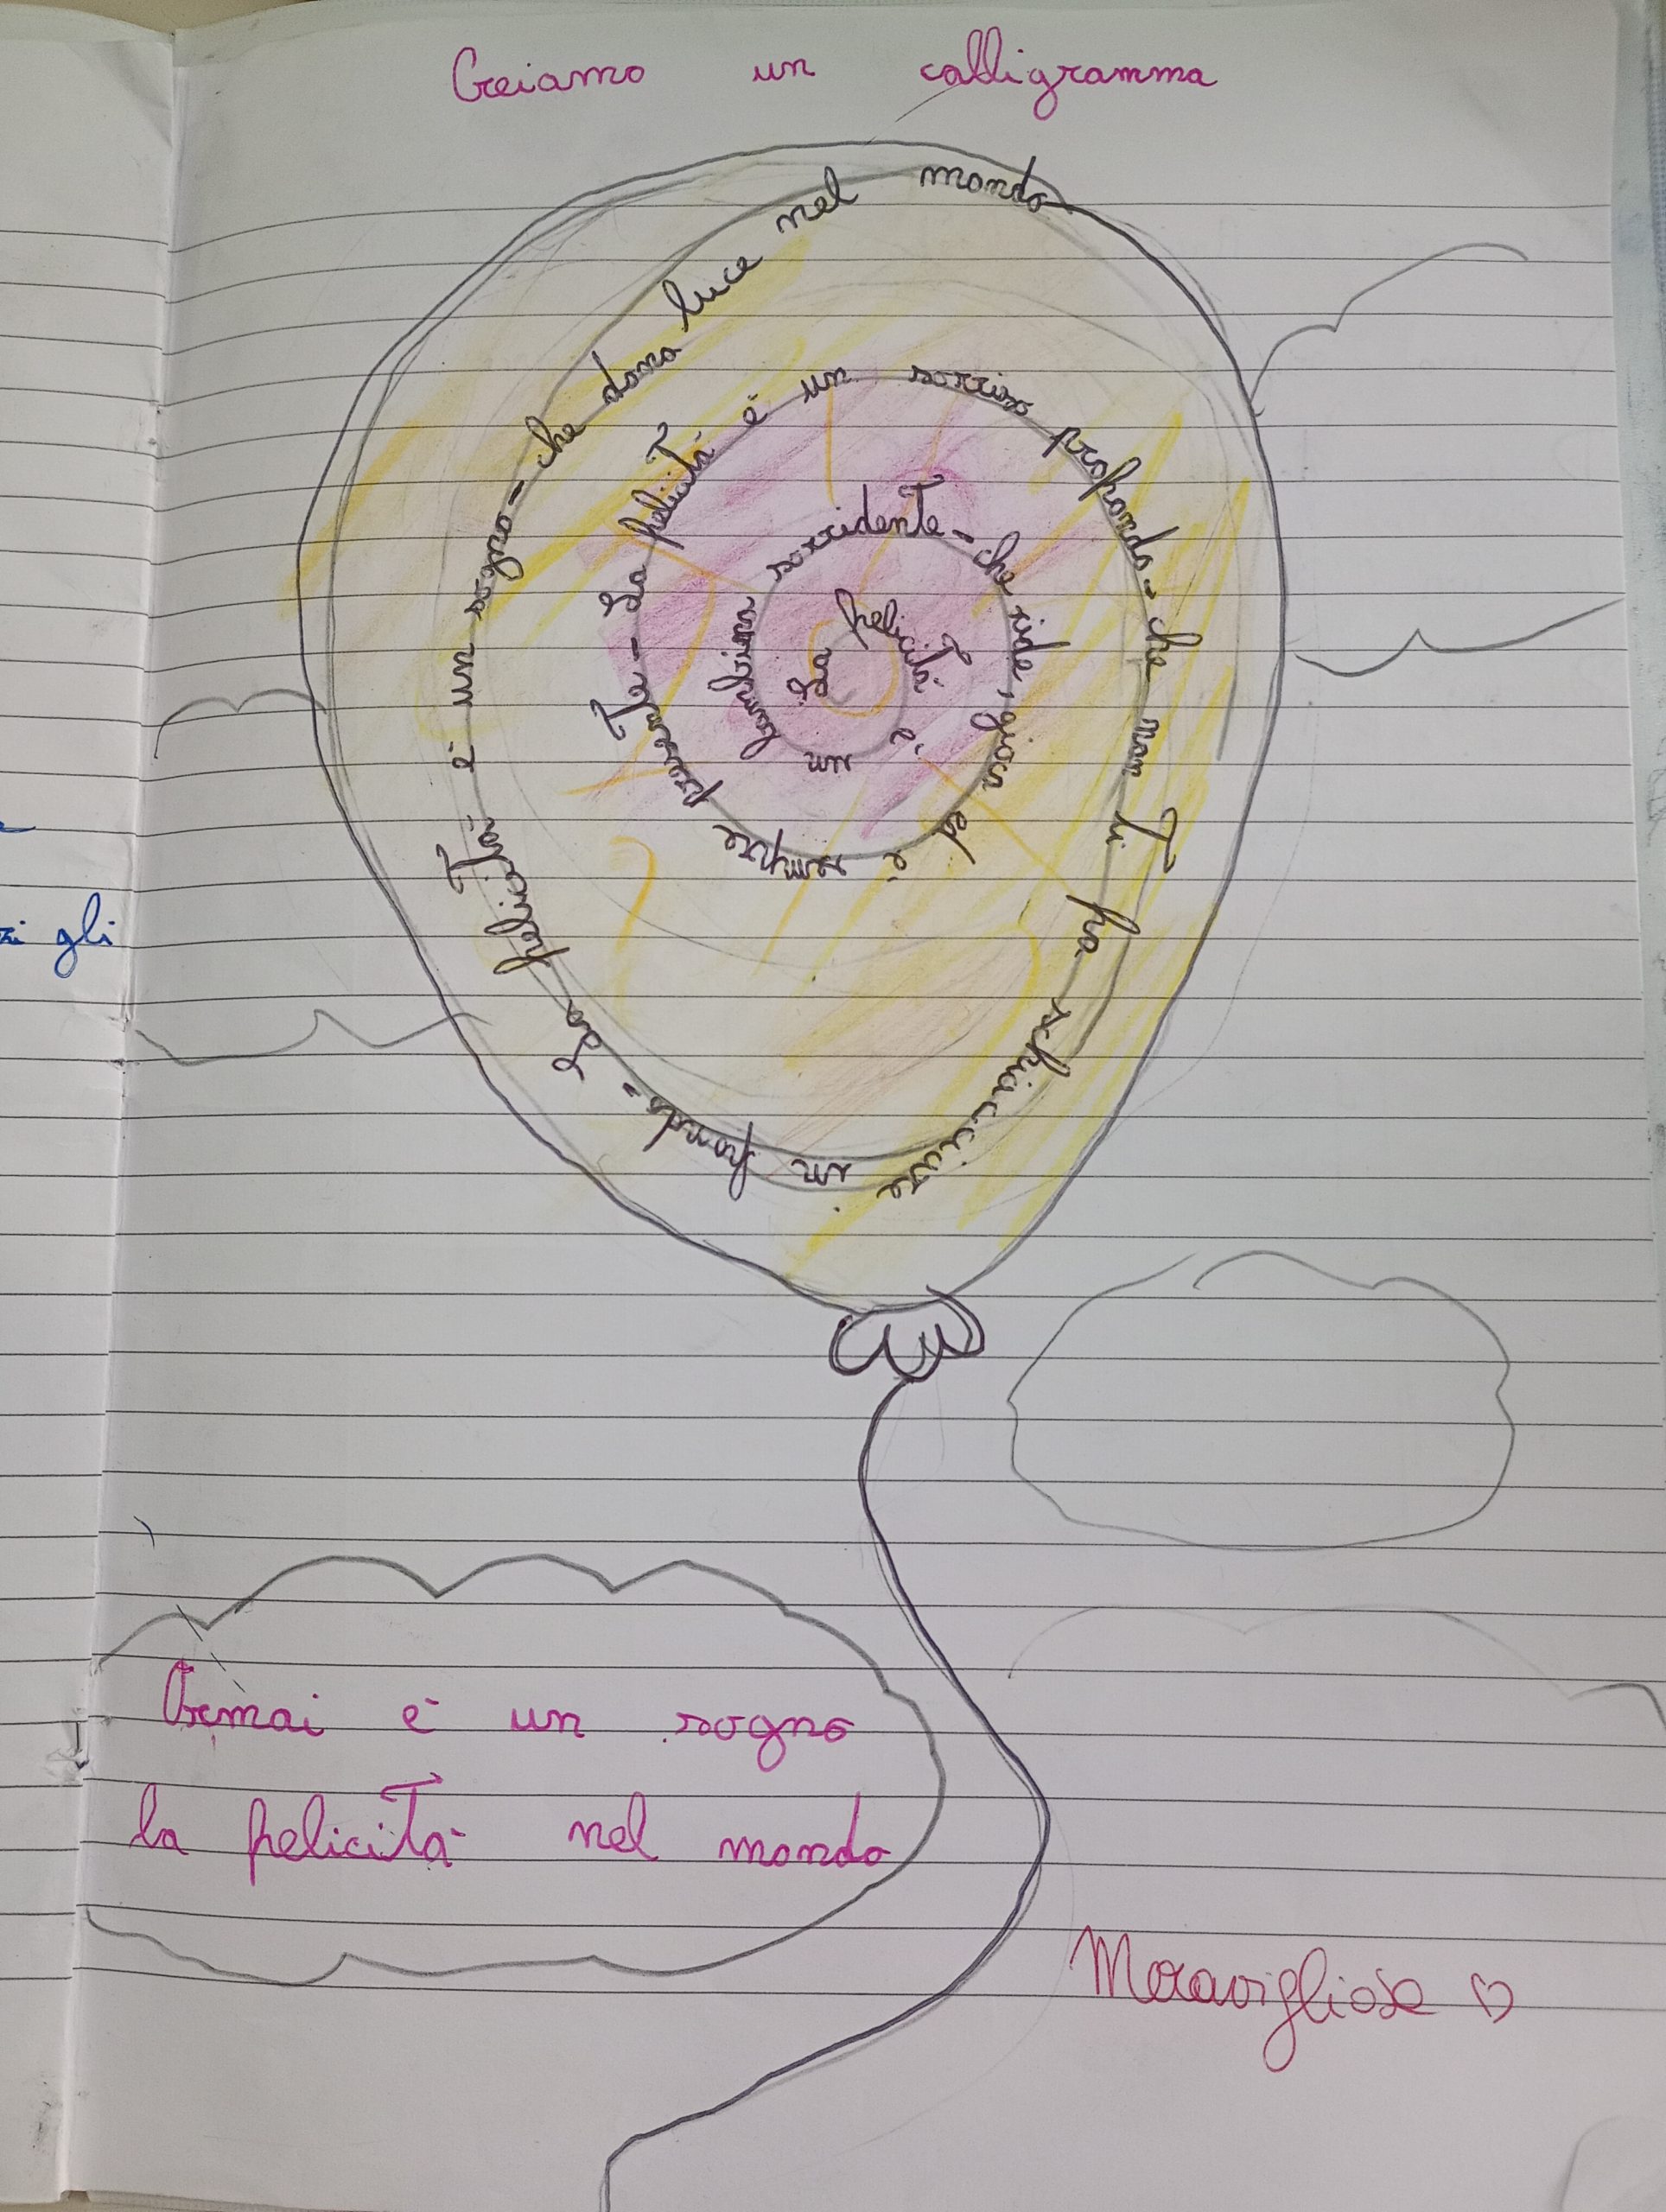 Creiamo un calligramma
La felicità è un bambino sorridente - che ride, gioca ed è sempre presente - La felicità è un sorriso profondo - che non ti fa schiacciare in fondo - La felicità è un sogno - che dona luce nel mondo
Ormai è un sogno
la felicità nel mondo
Meravigliosa ♡
gli